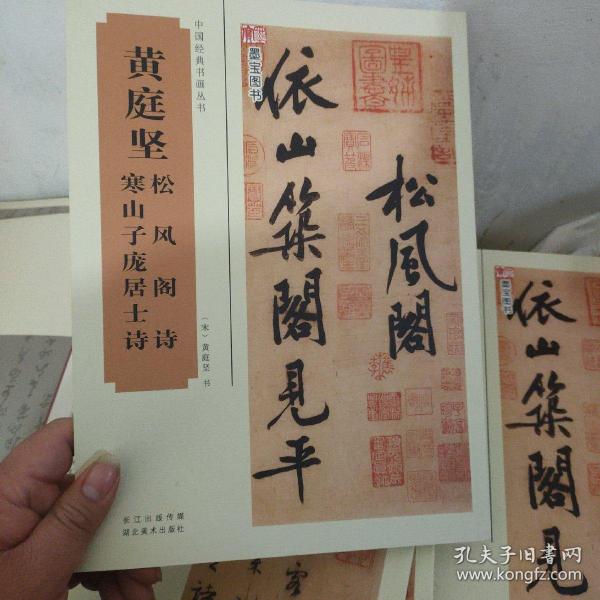 中国经典书画丛书
黄庭坚
松风阁诗
寒山子庞居士诗
(宋)黄庭坚 书
墨宝图书
松風閣
依山築閣見平
长江出版传媒
湖北美术出版社
墨宝图书
依山築閣見
孔夫子旧书网
www.kongfz.com